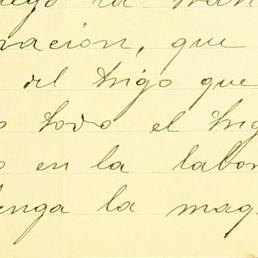 la
ración, que
del trigo que
todo el trig
en la labor
enga la maq